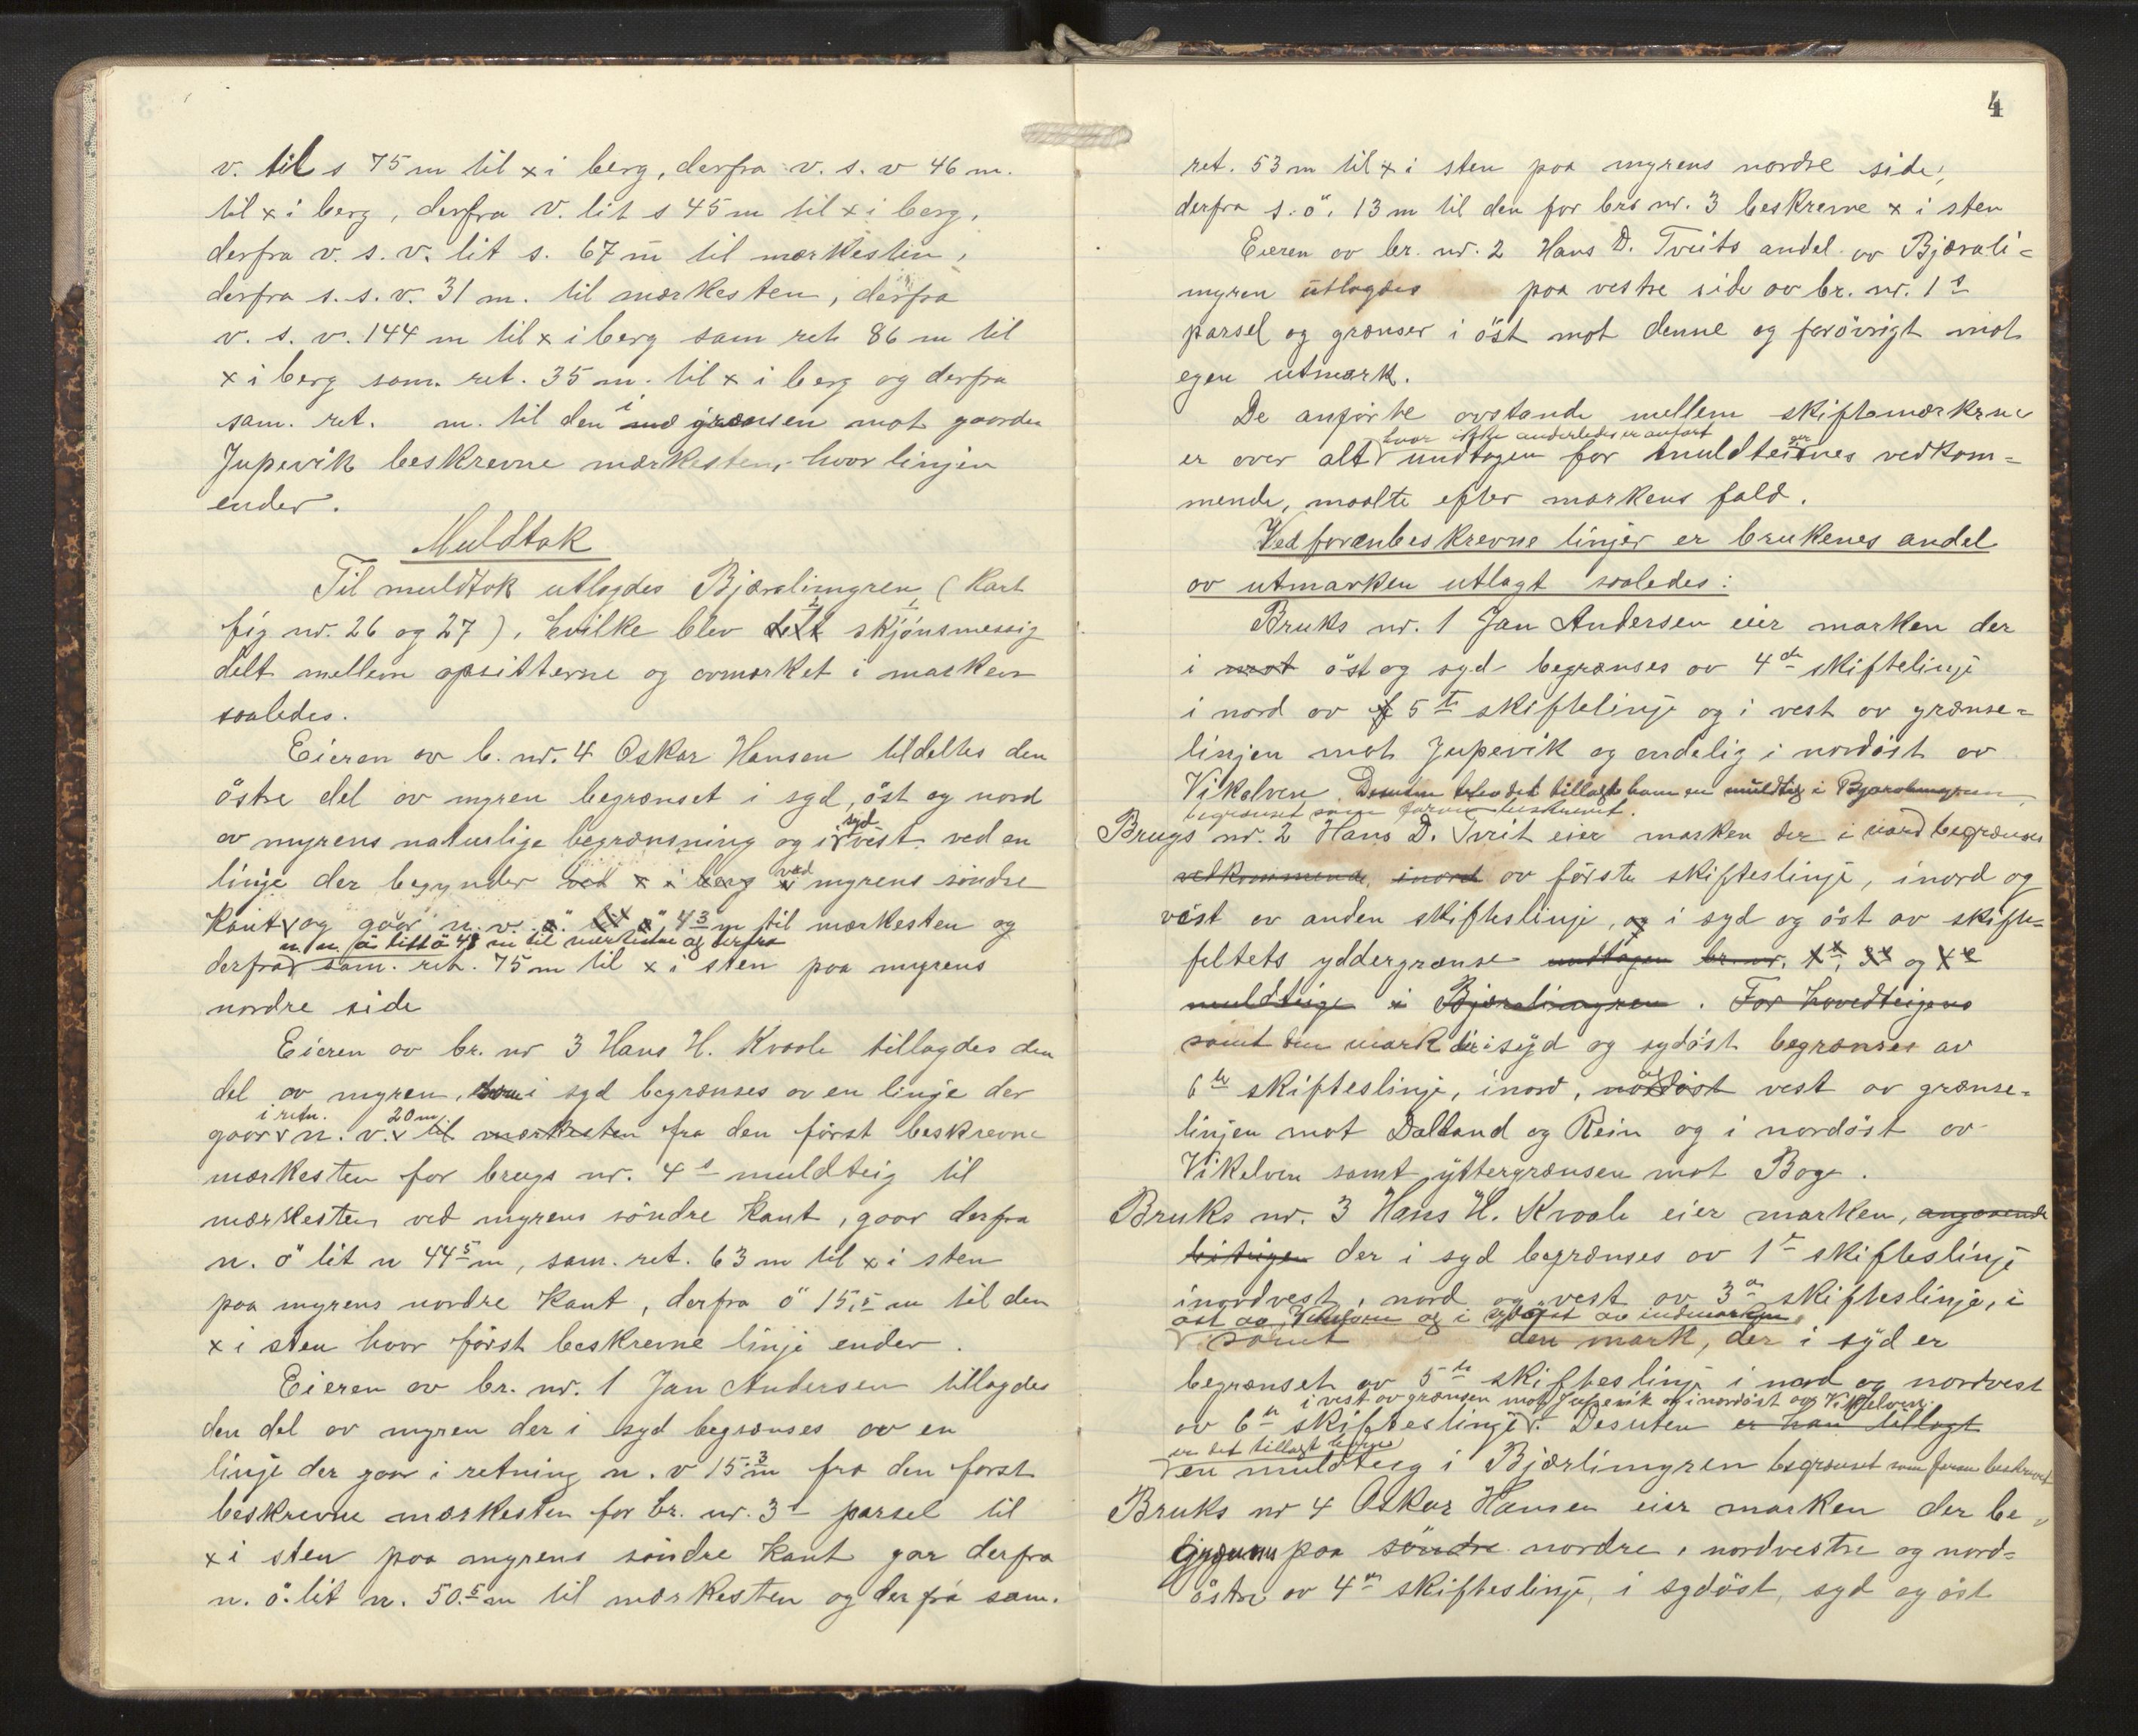 v. til s 75 m til x i berg, derfra v. s. v 46 m.
til x i berg, derfra v. lit s 45 m til x i berg,
derfra v. s. v. lit s. 67 m til merkesten,
derfra s. s. v. 31 m. til merkesten, derfra
v. s. v. 144 m til x i berg sam ret. 86 m til
x i berg sam. ret. 35 m. til x i berg og derfra
sam. ret. m. til den i grænsen mot gaarden
Jupevik beskrevne merkesten, hvor linjen
ender.
Muldtak
Til muldtak utlagdes Bjæralimyren (Kart
fig nr. 26 og 27), hvilke blev delt skjönsmessig
delt mellem opsitterne og avmerket i marken
saaledes.
Eieren av b. nr. 4 Oskar Hansen tildeltes den
östre del av myren begrænset i syd, öst og nord
syd
av myrens naturlige begrænsning og i vest ved en
ved
linje der begynder ved x i berg i myrens söndre
kant og gaar n. v. ö. lit ö 4 3 m til merkesten og
n. n. ö litt ö 48 m til merkesten og derfra
derfra sam. ret. 75 m til x i sten paa myrens
nordre side
Eieren av br. nr 3 Hans H. Kvaale tillagdes den
del av myren, som i syd begrænses av en linje der
i retn. 20 m
gaar n. v. til merkesten fra den först beskrevne
merkesten for brugs nr. 4s muldteig til
merkesten ved myrens söndre kant, gaar derfra
n. ö lit n 44 5 m, sam. ret. 63 m til x i sten
paa myrens nordre kant, derfra ö 15,5 m til den
x i sten hvor först beskrevne linje ender.
Eieren av br. nr. 1 Jan Andersen tillagdes
den del av myren der i syd begrænses av en
linje der gaar i retning n. v 15.3 m fra den först
beskrevne merkesten for br. nr. 3s parsel til
x i sten paa myrens söndre kant gar derfra
n. ö. lit n. 50.5 m til merkesten og derfra sam.
4
ret. 53 m til x i sten paa myrens nordre side,
derfra s. ö. 13 m til den for brs nr. 3 beskrevne x i sten
Eieren av br. nr. 2 Hans D. Tveits andel av Bjærali=
myren utlagdes paa vestre side av br. nr. 1s
parsel og grænser i öst mot denne og forövrigt mot
egen utmark.
De anförte avstande mellem skiftemerkene
hvor ikke anderledes er anfört
er over alt undtagen for muldteigenes vedkom=
mende, maalte efter markens fald.
Ved foranbeskrevne linjer er brukenes andel
av utmarken utlagt saaledes:
Bruks nr. 1 Jan Andersen eier marken der
i mot öst og syd begrænses av 4de skiftelinje
i nord av 5te skiftelinje og i vest av grænse=
linjen mot Jupevik og endelig i nordöst av
Vikelven. Desuten blev det tillagt ham en muldteig i Bjæralimyren
begrænset som foran beskrevet.
Brugs nr. 2 Hans D. Tveit eier marken der i nord begrænses
vedkommende, i nord av förste skifteslinje, i nord og
vest av anden skifteslinje, og i syd og öst av skifte=
feltets yddergrænse undtagen br. nr. 1s, 3s og 4s
muldteige i Bjæralimyren. For hovedteigens
samt den mark der i syd og sydöst begrænses av
6te skifteslinje, i nord, nordöst og vest av grænse=
linjen mot Dalland og Rein og i nordöst av
Vikelven samt yttergrænsen mot Boge.
Bruks nr. 3 Hans H. Kvaale eier marken, angaaende
der i syd begrænses av 1te skifteslinje
i nordvest, nord og vest av 3de skifteslinje, i
öst av Vikelven og i sydöst av indmarken
samt den mark, der i syd er
begrænset av 5te skifteslinje i nord og nordvest
i vest av grænsen mot Jupevik og i nordöst av Vikelven.
av 6te skifteslinje. Desuten er han tillagt
er det tillagt
en muldteig i Bjærlimyren begrænset som foran beskrevet
Bruks nr 4 Oskar Hansen eier marken der be=
grænses paa söndre nordre, nordvestre og nord=
östre av 4de skifteslinje, i sydöst, syd og öst